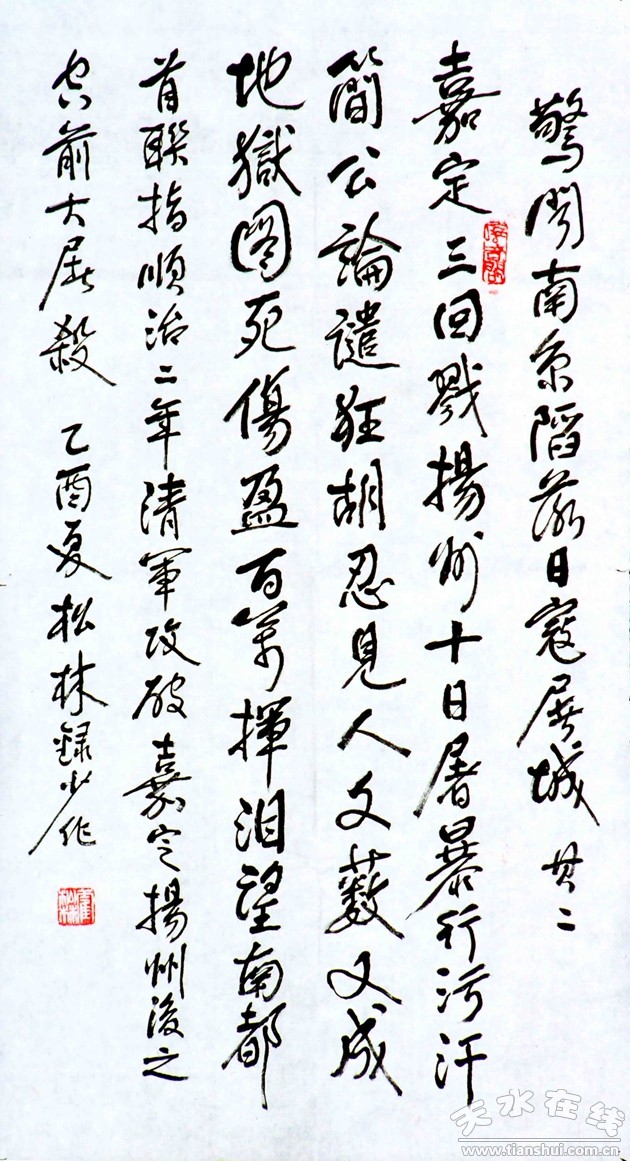 驚聞南京陷落日寇屠城 其二
嘉定三回戮揚州十日屠暴行污汗
簡公論譴狂胡忍見人文藪又成
地獄圖死傷盈百萬揮淚望南都
首聯指順治二年清軍攻破嘉定揚州後之
空前大屠殺 乙酉夏松林錄少作
天水在线
www.tianshui.com.cn